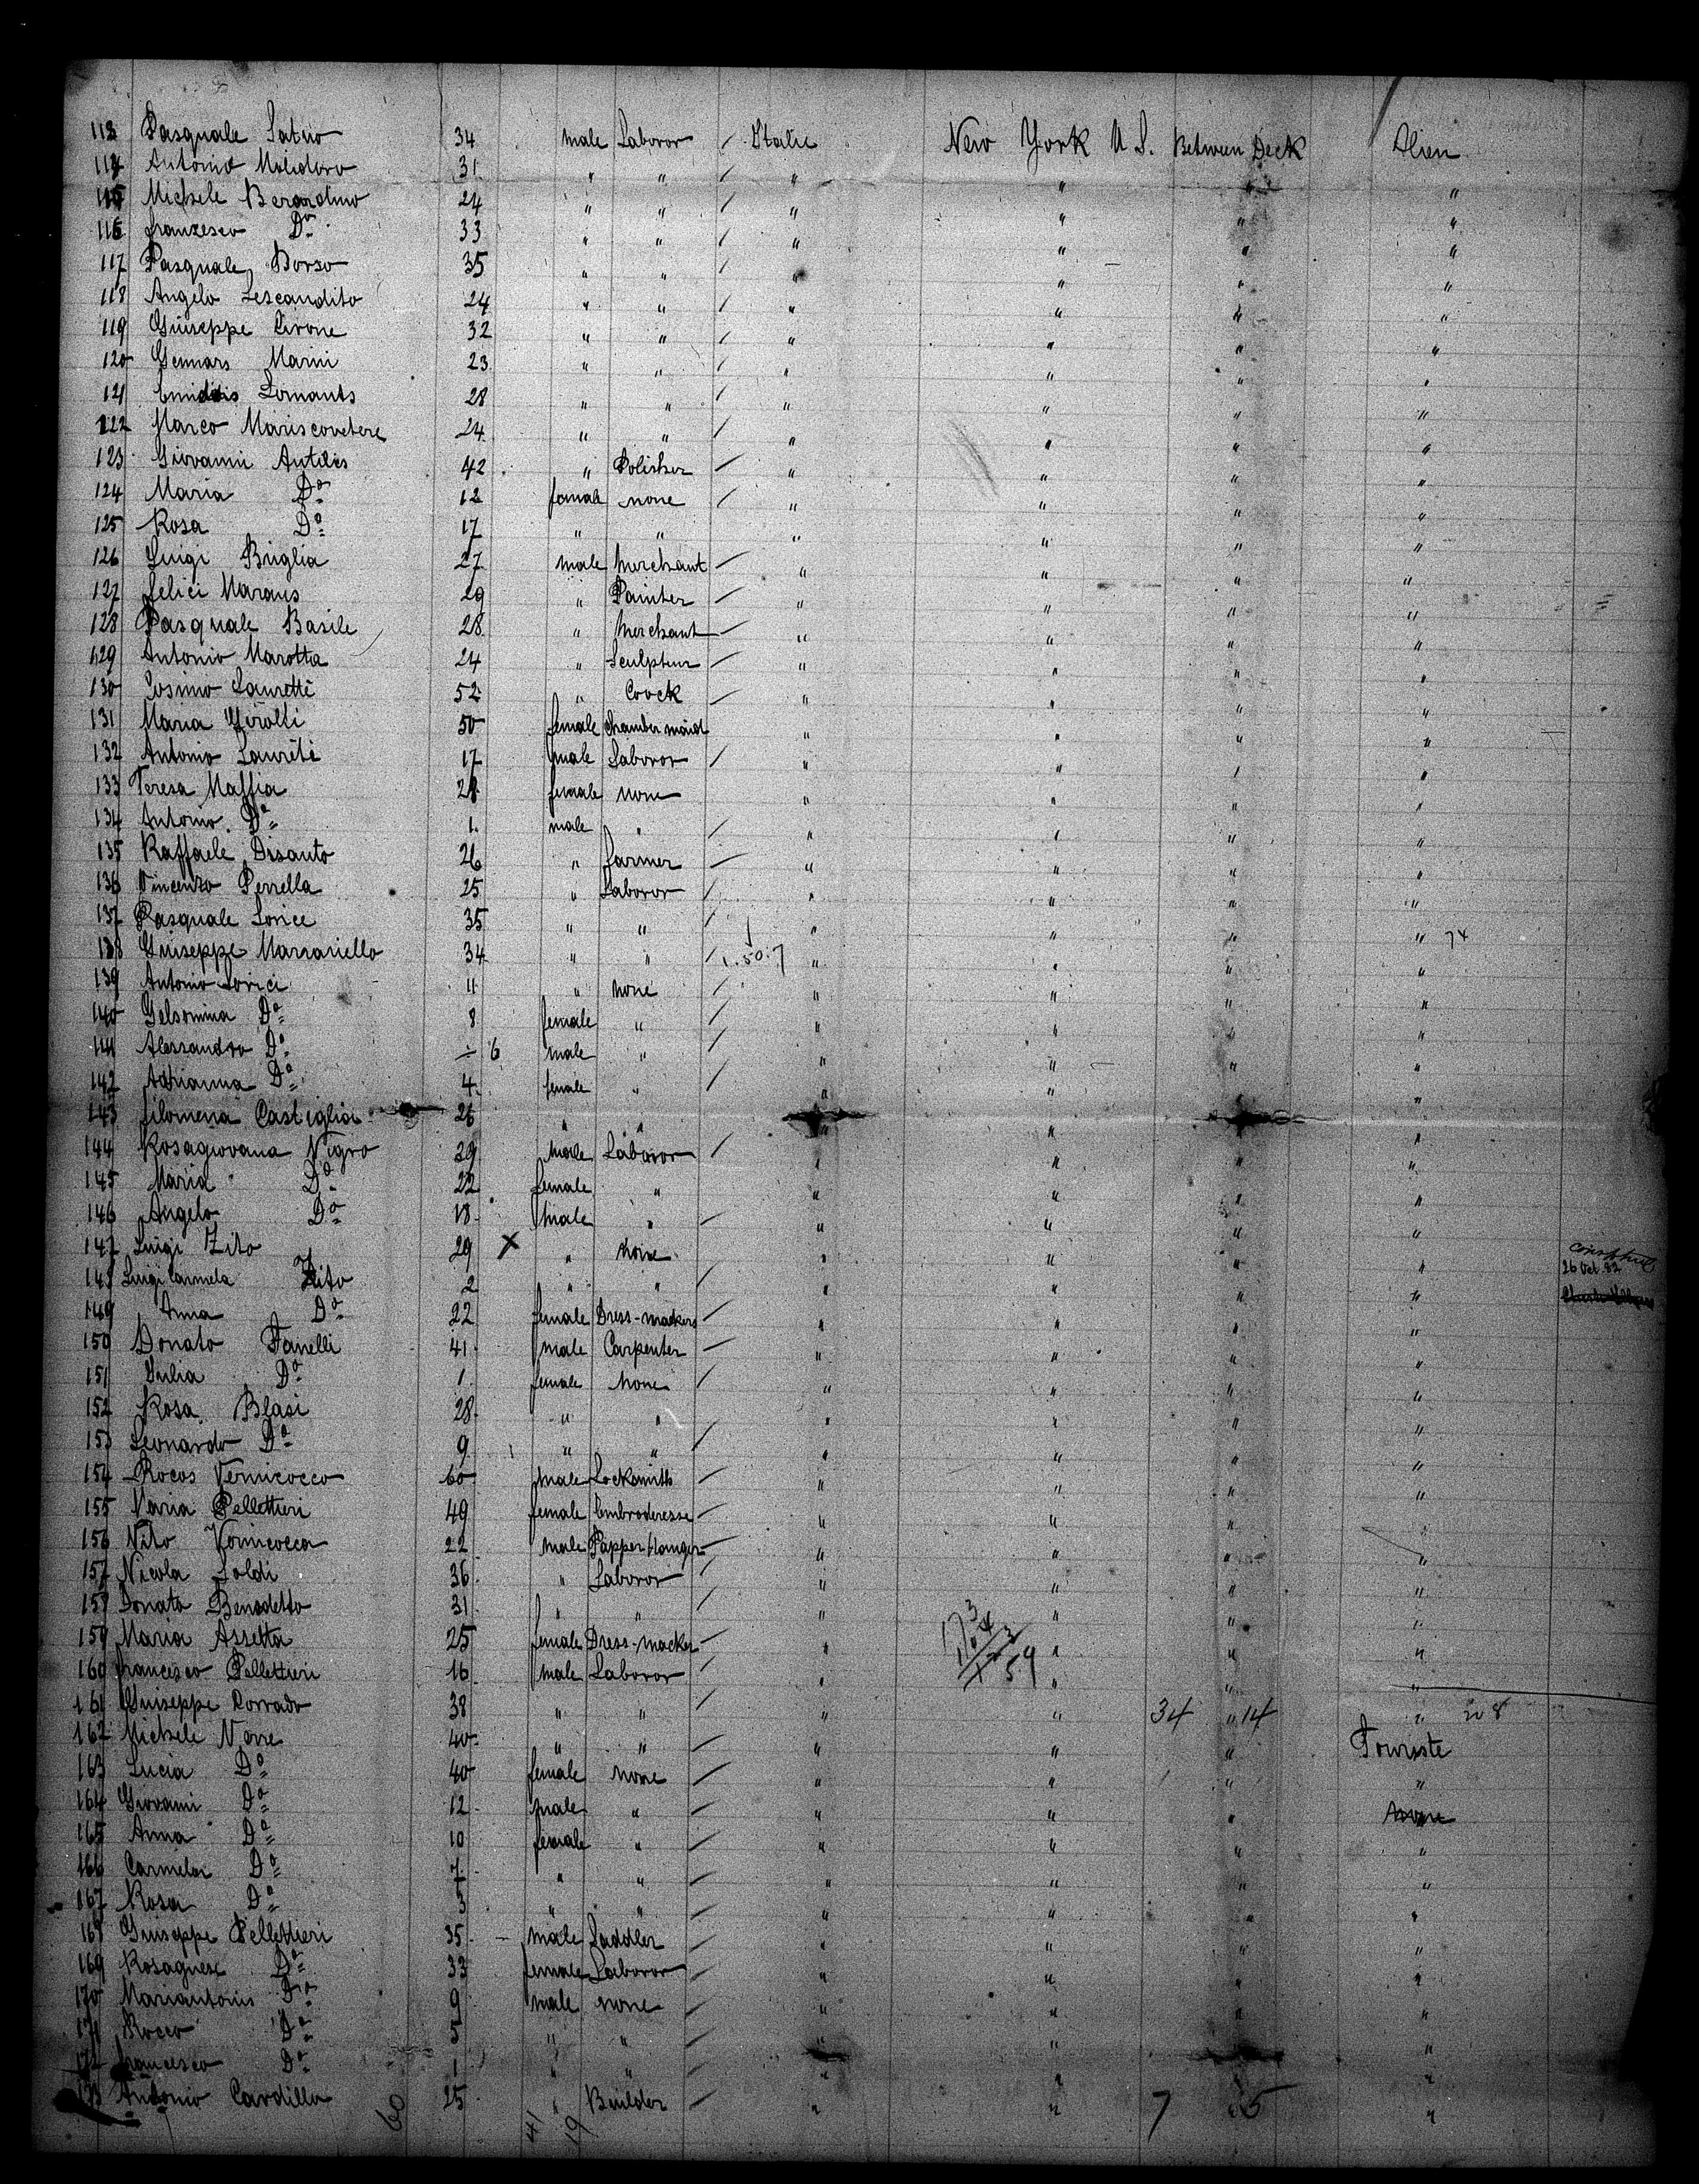 113 Pasquale Satno 34 male Laboror / Italie New York U S. Between Deck Alien
114 Antonio Molidoro 31 " " / " " " "
115 Michele Berardino 24 " " / " " " "
116 francesco Do 33 " " / " " " "
117 Pasquale Borso 35 " " / " " " "
118 Angelo Lescandito 24 " " / " " " "
119 Giuseppe Cirone 32 " " / " " " "
120 Gennaro Marini 23 " " / " " " "
121 Lomanto 28 " " / " " " "
122 Marco Mariscovetere 24 " " / " " " "
123 Giovanni Antilis 42 " Polisher / " " " "
124 Maria Do 12 female none / " " " "
125 Rosa Do 17 " " " " " "
126 Luigi Briglia 27 male Merchant / " " " "
127 felici Marans 29 " Painter / " " " "
128 Pasquale Basile 28 " Merchant / " " " "
129 Antonio Marotta 24 " Sculpteur / " " " "
130 Cosimo Lauretti 52 " Coock / " " " "
131 Maria 50 female Chamber maid " " " "
132 Antonio Laureti 17 male Laboror / " " " "
133 Teresa Maffia 28 female none " " " "
134 Antonio Do 1 male " / " " " "
135 Raffaele Disanto 26 " farmer / " " " "
136 Vincenzo Perrella 25 " Laboror / " " " "
137 Pasquale Lorice 35 " " / " " " " 74
138 Giuseppe Marrariello 34 " " / 1.50.7 " " " "
139 Antonio Lorici 11 " none / " " " "
140 Gelsomina Do 8 female " / " " " "
141 Alessandro Do 6 male " / " " " "
142 Adrianna Do 4 female " / " " " "
143 filomena Castiglia 26 " " " " " "
144 Rosagiovana Nigro 39 male Laboror / " " " "
145 Maria Do 22 female " " " " "
146 Angelo Do 18 male " / " " " "
147 Luigi Zito 29 X " none " " " "
148 Luigi Carmela Zito 2 " " / " " " " 26 Oct. 82
149 Anna Do 22 female Dress-mackers / " " " "
150 Donato Fanelli 41 male Carpenter / " " " "
151 Julia Do 1 female none / " " " "
152 Rosa Blasi 28 " " " " " "
153 Leonardo Do 9 " " / " " " "
154 Rocos Vernicocco 60 male Locksmith / " " " "
155 Maria Pellettieri 49 female Embroderesse / " " " "
156 Vito Vernicocca 22 male Papper Hanger / " " " "
157 Nicola Soldi 36 " Laboror / " " " "
158 Donato Benedetto 31 " " / " " " "
159 Maria Assetta 25 female Dress-macker / " " " "
160 francesco Pellettieri 16 male Laboror / " " " "
161 Giuseppe Corrado 38 " " / " " 34 " 14 " 208
162 Michele None 40 " " / " " " Touriste
163 Lucia Do 40 female none / " " " "
164 Giovanni Do 12 male " / " " "
165 Anna Do 10 female " / " " " "
166 Carmela Do 7 " " / " " " "
167 Rosa Do 3 " " / " " " "
168 Giuseppe Pellettieri 35 male Saddler / " " " "
169 Rosagnese Do 33 female Laboror / " " " "
170 Mariantonis Do 9 male none / " " " "
171 Rocco Do 5 " " / " " " "
172 francesco Do 1 " " / " " " "
173 Antonio Cardillo 25 " Builder / " " 7 " 5 "
60 41 19